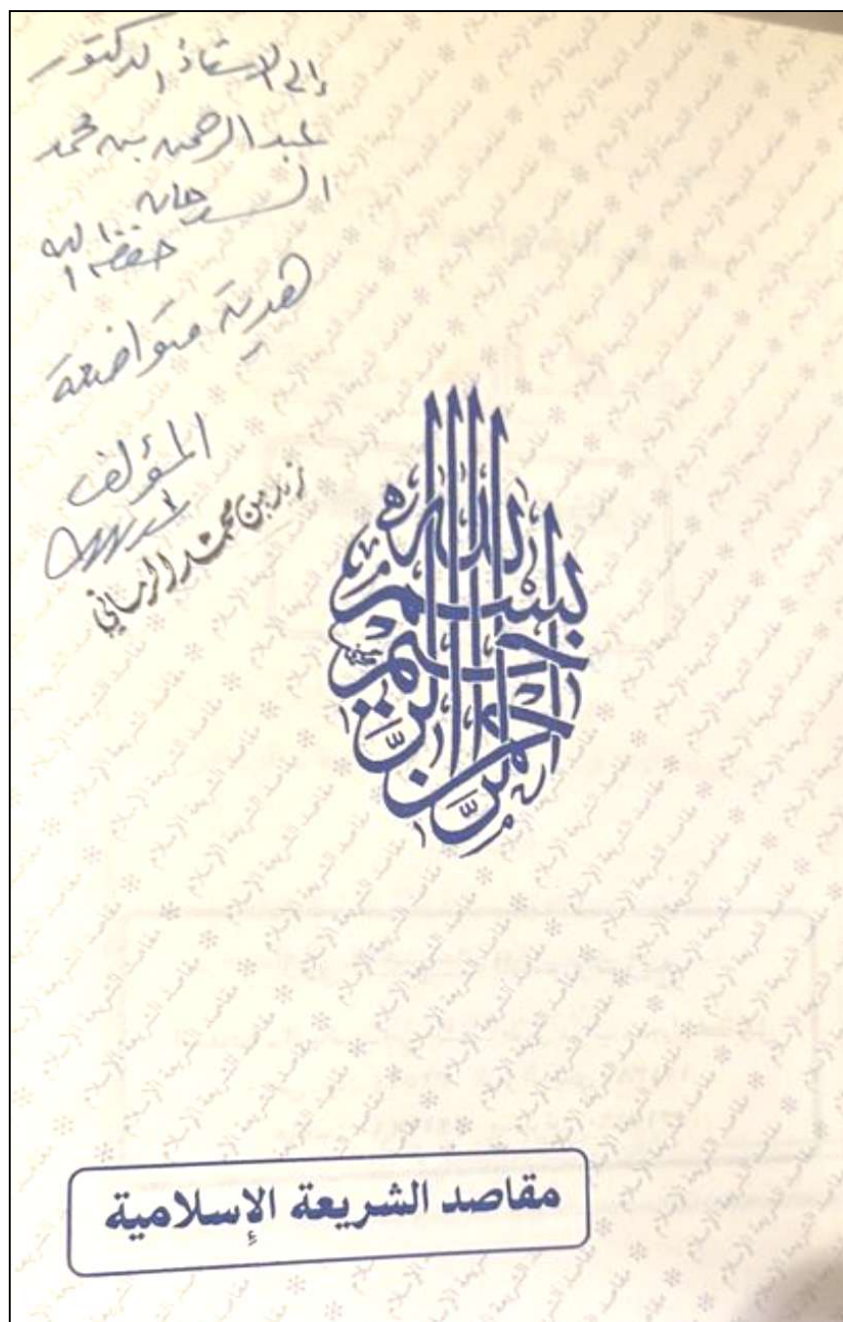 إلى الأستاذ الدكتور
عبد الرحمن بن محمد
السدحان
حفظه الله
هدية متواضعة
المؤلف
زيد بن محمد الرماني
بسم الله الرحمن الرحيم
مقاصد الشريعة الإسلامية